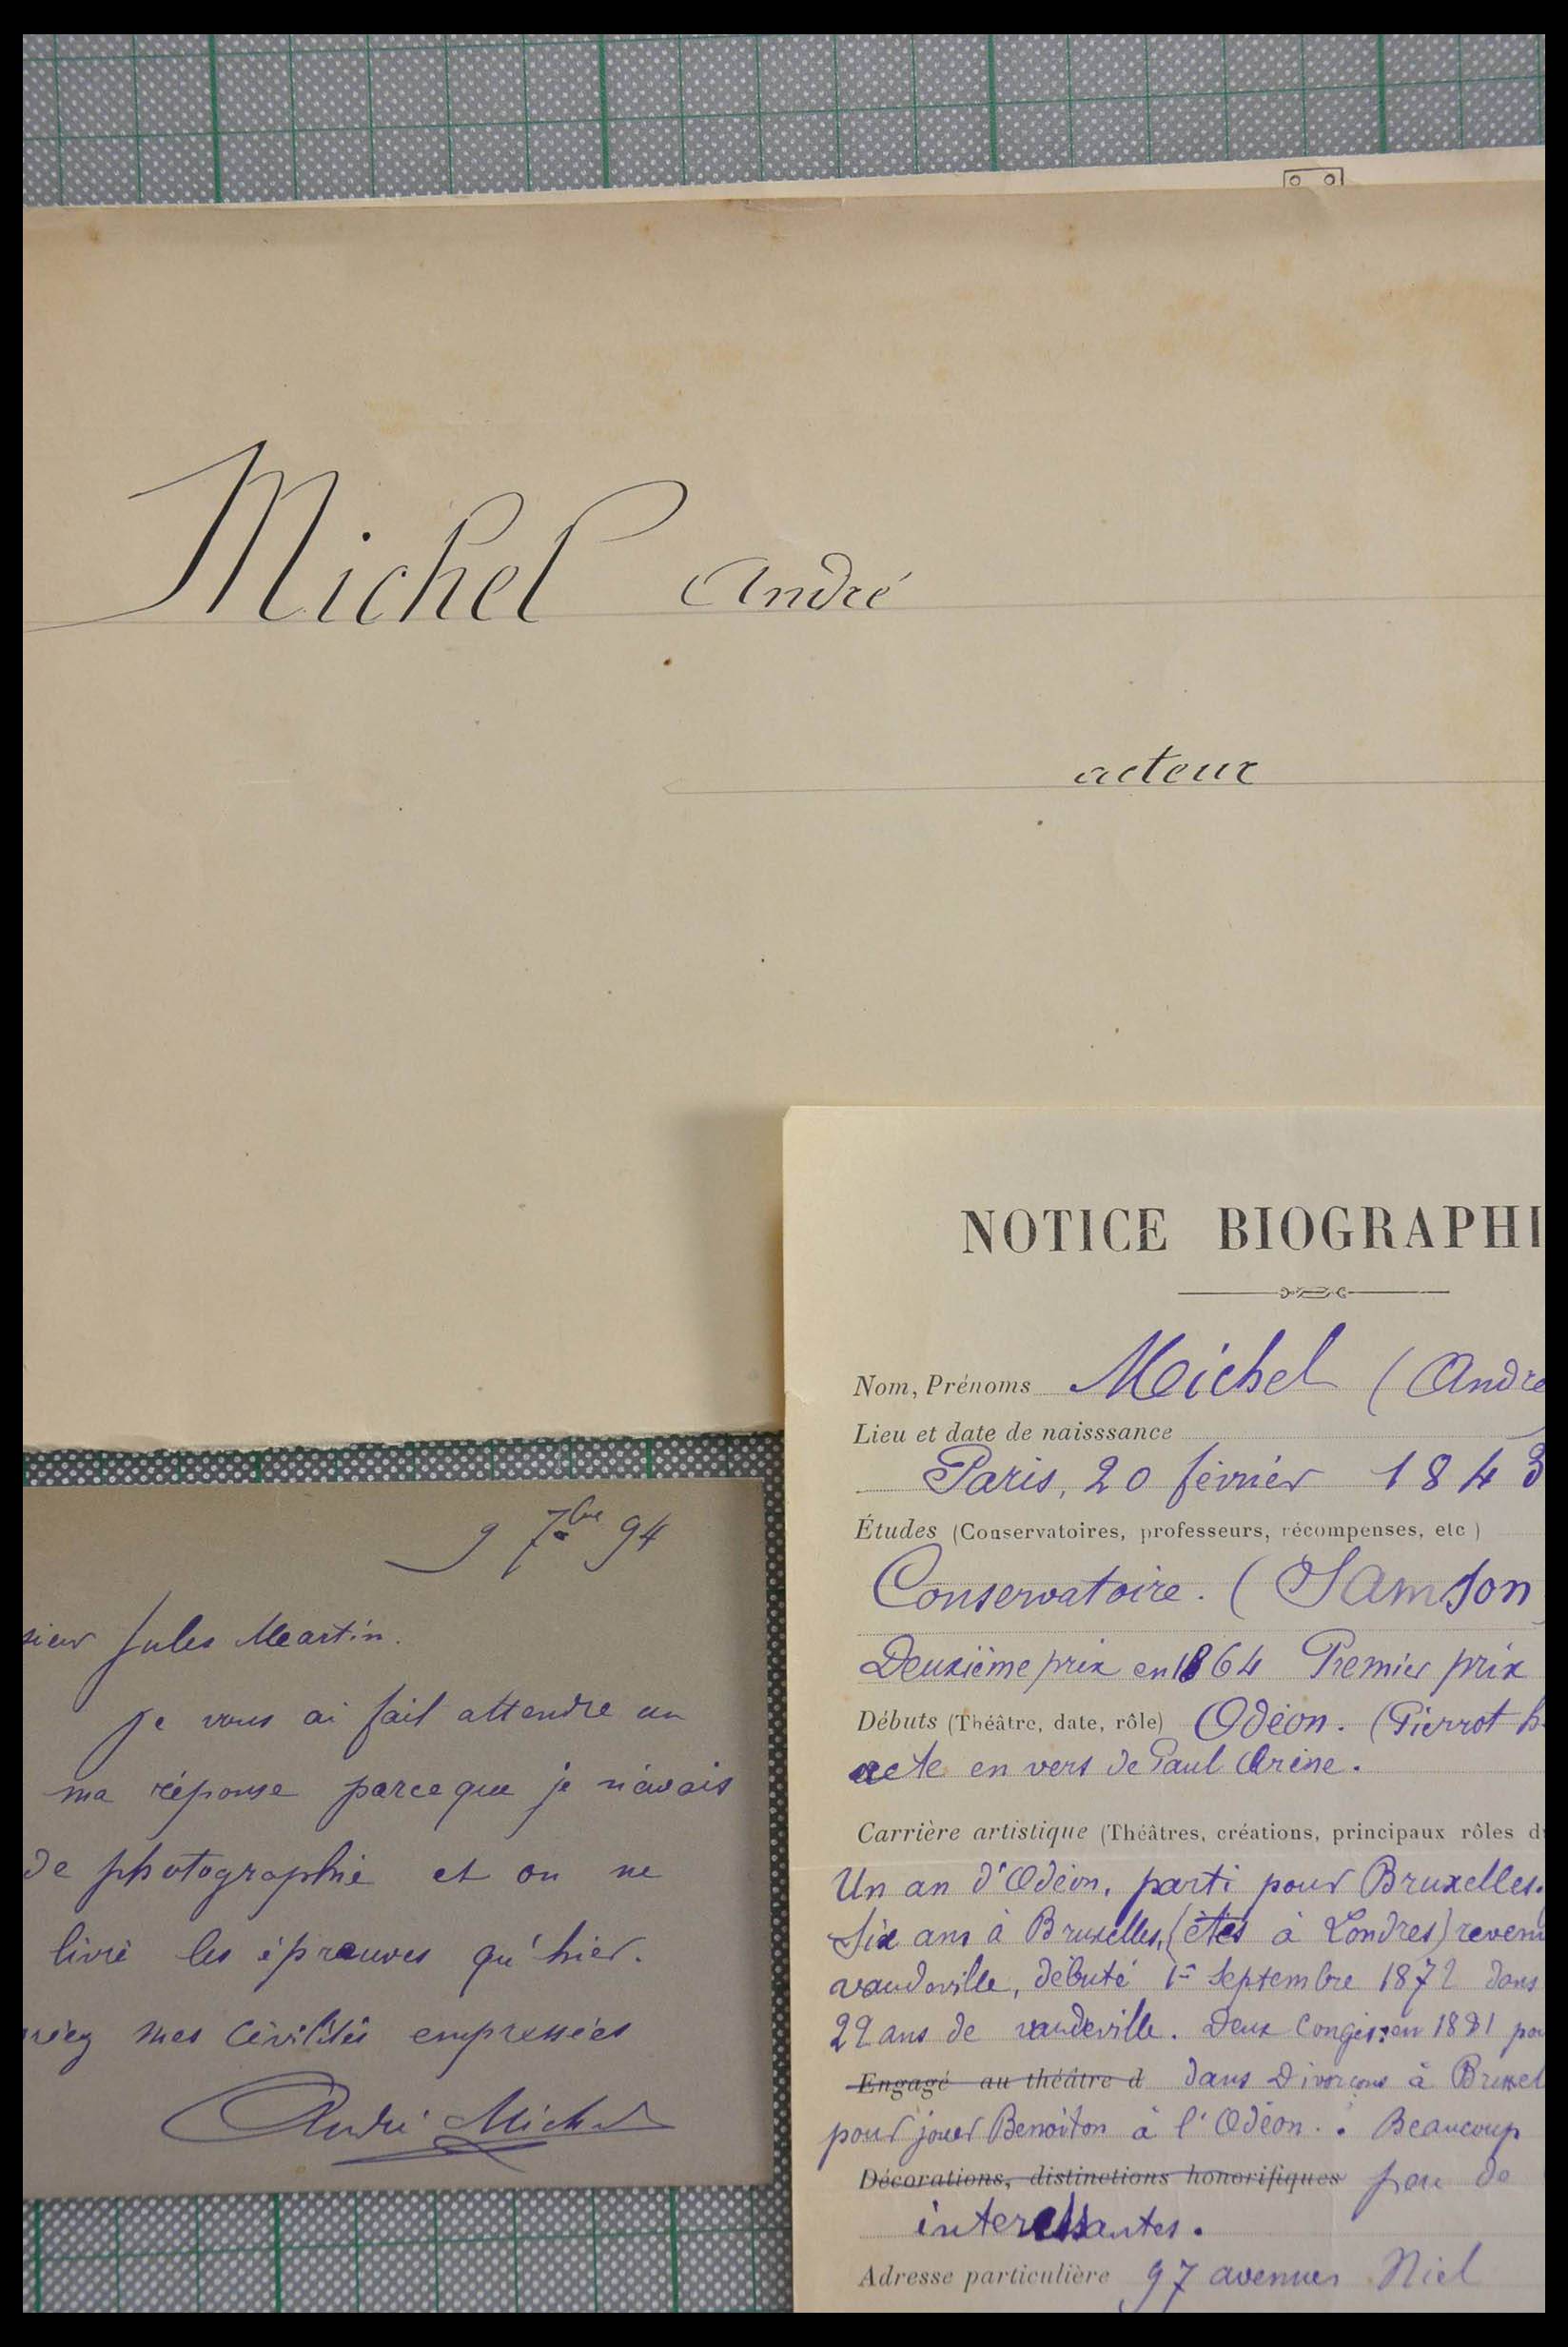 Michel André
acteur
9 7bre 94
sieur Jules Martin.
je vous ai fait attendre un
ma réponse parceque je n'avais
de photographie et on ne
livré les épreuves qu'hier.
mes civilités empressées
André Michel
NOTICE BIOGRAPHI
Nom, Prénoms Michel (André
Lieu et date de naisssance
Paris, 20 février 1843
Études (Conservatoires, professeurs, récompenses, etc)
Conservatoire. (Samson
Deuxième prix en 1864 Premier prix
Débuts (Théâtre, date, rôle) Odéon. (Pierrot h
acte en vers de Paul Arène.
Carrière artistique (Théâtres, créations, principaux rôles d
Un an d'Odéon, parti pour Bruxelles.
Six ans à Bruxelles, (étés à Londres) reven
vaudeville, débuté 1er Septembre 1872 dans
22 ans de vaudeville. Deux congés: en 1881 po
Engagé au théâtre d dans Divorçons à Bruxel
pour jouer Benoiton à l'Odéon. Beaucoup
Décorations, distinctions honorifiques peu de
interessantes.
Adresse particulière 97 avenue Niel